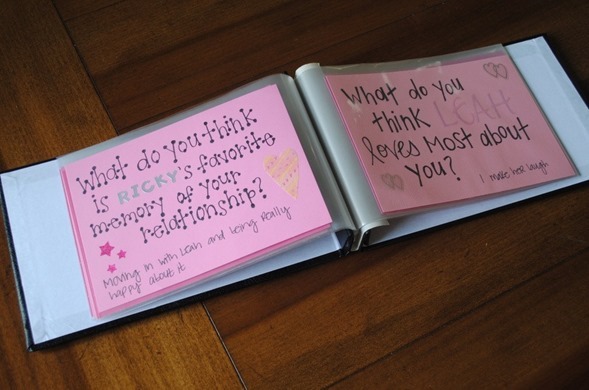 What do you think
is RICKY's favorite
memory of your
relationship?
Moving in with Leah and being really
happy about it
What do you
think LEAH
loves most about
you?
I make her laugh